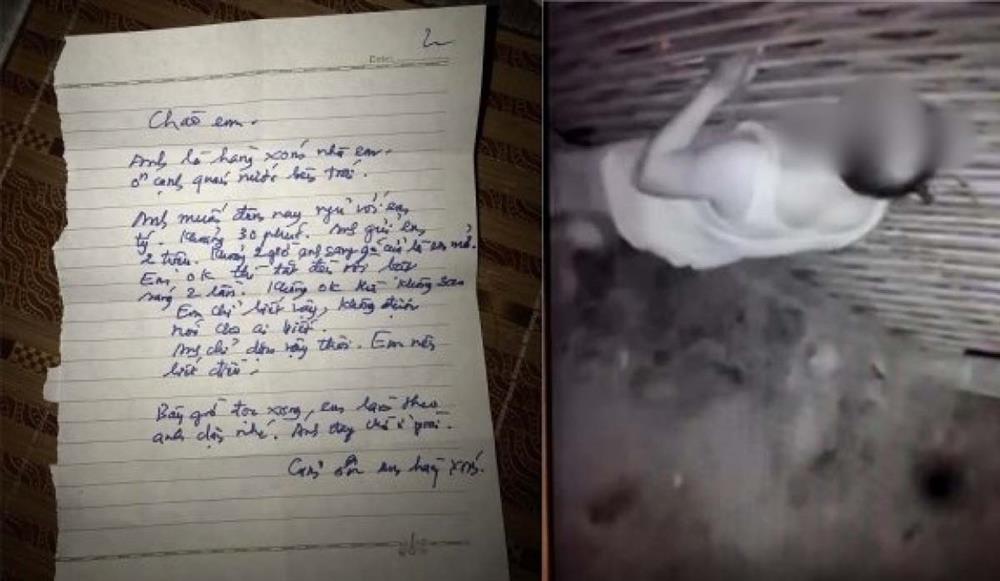 Date:
Chào em.
Anh là hàng xóm nhà em.
Ở cạnh quán nước bên trái.
Anh muốn đêm nay ngủ với em
tý. Khoảng 30 phút. Anh gửi em
2 triệu. Khoảng 2 giờ anh sang gõ cửa là em mở.
Em ok thì tắt đèn rồi bật
sáng 2 lần. Không ok thì không sao
Em chỉ biết vậy, không được
nói cho ai biết.
Anh chỉ dặn vậy thôi. Em nên
biết điều.
Bây giờ đọc xong, em làm theo
anh dặn nhé. Anh đang chờ ở
Cảm ơn em hàng xóm.